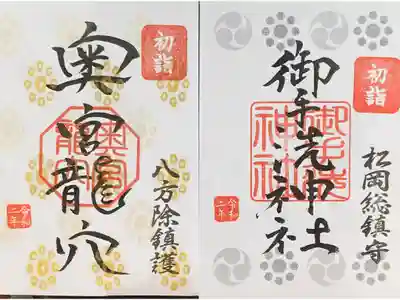 初詣
奥宮龍穴
八方除鎮護
令和二年
初詣
御手先神社
松岡総鎮守
令和二年